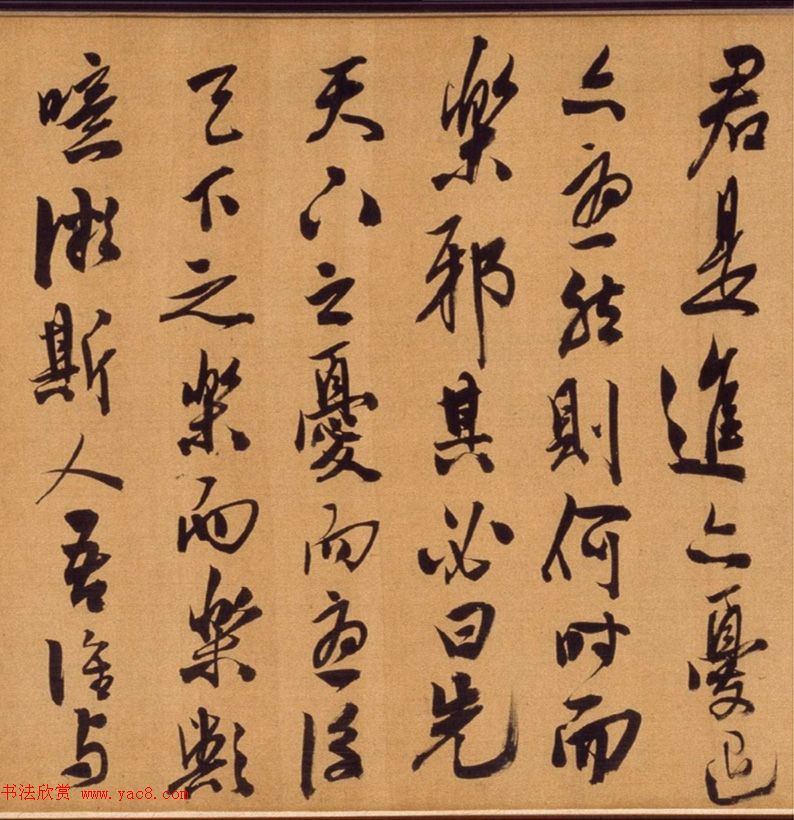 君是進亦憂退
亦憂然則何时而
樂邪其必曰先
天下之憂而憂後
天下之樂而樂歟
噫微斯人吾誰与
书法欣赏 www.yac8.com